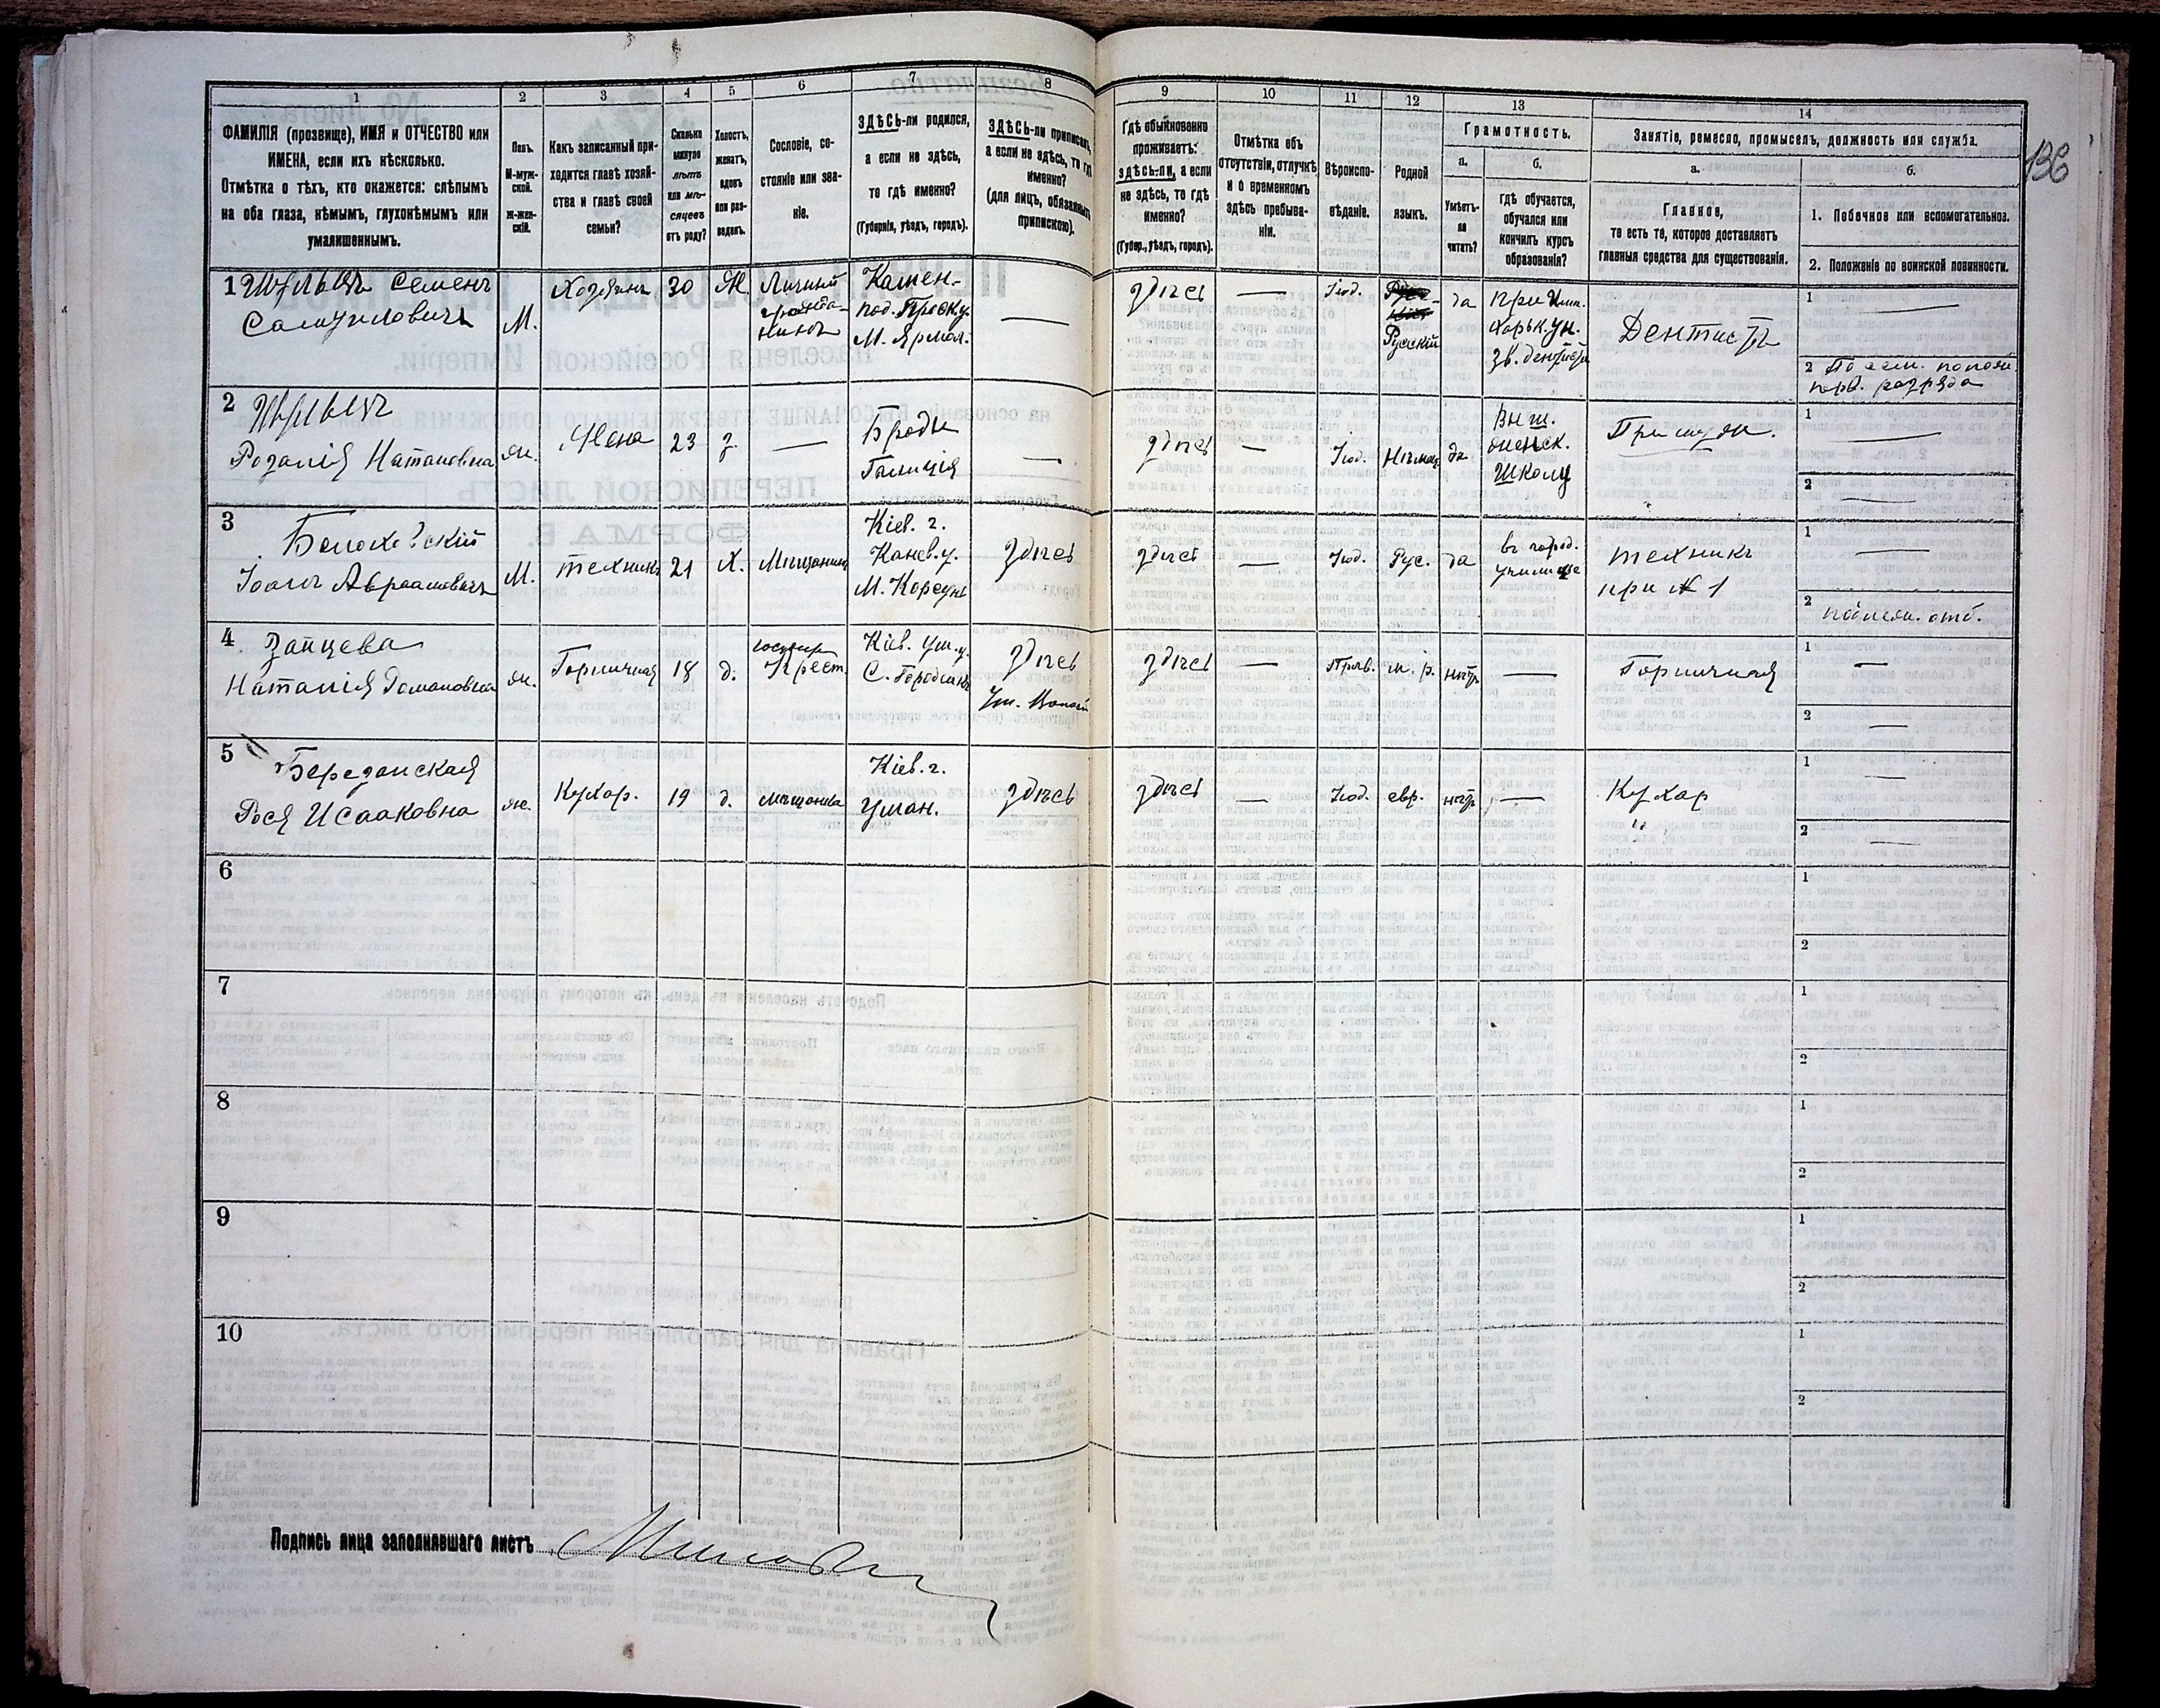 1 2 3 4 5 6 7 8
ФАМИЛІЯ (прозвище), ИМЯ и ОТЧЕСТВО или
ИМЕНА, если ихъ нѣсколько.
Отмѣтка о тѣхъ, кто окажется: слѣпымъ
на оба глаза, нѣмымъ, глухонѣмымъ или
умалишеннымъ.
Полъ.
М-муж-
ской.
Ж-жен-
скій.
Какъ записанный при-
ходится главѣ хозяй-
ства и главѣ своей
семьи?
Сколько
минуло
лѣтъ
или мѣ-
сяцевъ
отъ роду?
Холостъ,
женатъ,
вдовъ
или раз-
веденъ.
Сословіе, со-
стояніе или зва-
ніе.
ЗДѢСЬ-ли родился,
а если не здѣсь,
то гдѣ именно?
(Губернія, уѣздъ, городъ).
ЗДѢСЬ-ли приписанъ,
а если не здѣсь, то гдѣ
именно?
(для лицъ, обязанныхъ
припискою).
9 10 11 12 13 14
Гдѣ обыкновенно
проживаетъ:
здѣсь-ли, а если
не здѣсь, то гдѣ
именно?
(Губер., уѣздъ, городъ).
Отмѣтка объ
отсутствіи, отлучкѣ
и о временномъ
здѣсь пребыва-
ніи.
Вѣроиспо-
вѣданіе.
Родной
языкъ.
Грамотность.
а.
Умѣетъ-
ли
читать?
б.
гдѣ обучается,
обучался или
кончилъ курсъ
образованія?
Занятіе, ремесло, промыселъ, должность или служба.
а.
Главное,
то есть то, которое доставляетъ
главныя средства для существованія.
б.
1. Побочное или вспомогательное.
2. Положеніе по воинской повинности.
136
1
Семенъ
Самуиловичъ
М.
Хозяинъ
30
Ж.
Личный
гражда-
нинъ
Камен-
под. Проск.у.
М. Ярмол.
—
здѣсь
—
Іюд.
Русскій
да
при Имп.
Харьк. ун.
зв. дентиста
Дентистъ
1 —
2
перв. разряда
2
Розалія Натановна
ж.
Жена
23
з.
—
Броды
Галиція
—
здѣсь
—
Іюд.
Нѣмец
да
женск.
школу
При муж.
1 —
2 —
3
Іоаннъ Авраамовичъ
М.
техникъ
21
Х.
Мѣщанинъ
Кіев. г.
Канев. у.
М. Корсунь
здѣсь
здѣсь
—
Іюд.
Рус.
да
въ город.
училище
техникъ
при № 1
1 —
2
4
Зайцева
Наталія Романовна
ж.
Горничная
18
д.
Крест.
Кіев. Ум. у.
здѣсь
здѣсь
—
Прав.
м. р.
нѣтъ
—
Горничная
1 —
2 —
5
Березанская
Рося Исааковна
ж.
Кухар.
19
д.
мѣщанка
Кіев. г.
Уман.
здѣсь
здѣсь
—
Іюд.
евр.
нѣтъ
—
Кухар
1 —
2 —
6
1
2
7
1
2
8
1
2
9
1
2
10
1
2
Подпись лица заполнявшаго листъ